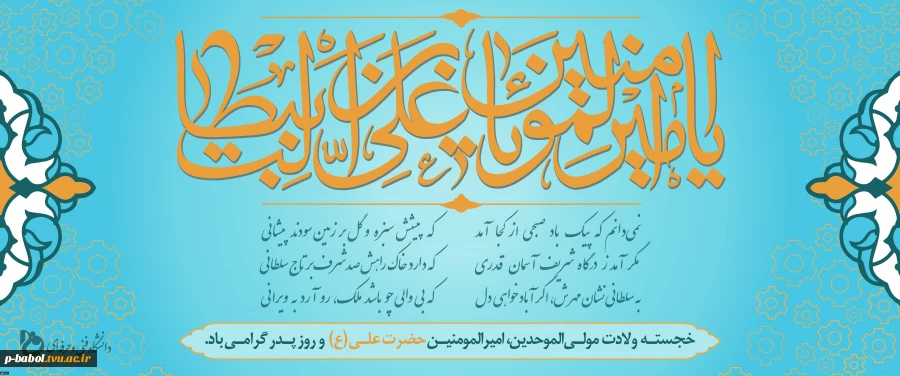 یا امیرالمومنین یا علی بن ابی طالب
نمی‌دانم که پیک باد صبحی از کجا آمد
که پیشش سبزه و گل بر زمین سودند پیشانی
مگر آمد ز درگاه شریف آسمان قدری
که دارد خاک راهش صد شرف بر تاج سلطانی
به سلطانی نشان مهرش، اگر آباد خواهی دل
که بی والی چو باشد ملک، رو آرد به ویرانی
خجسته ولادت مولی‌الموحدین، امیرالمومنین حضرت علی (ع) و روز پدر گرامی باد.
دانشگاه فنی و حرفه‌ای
p-babol.tvu.ac.ir